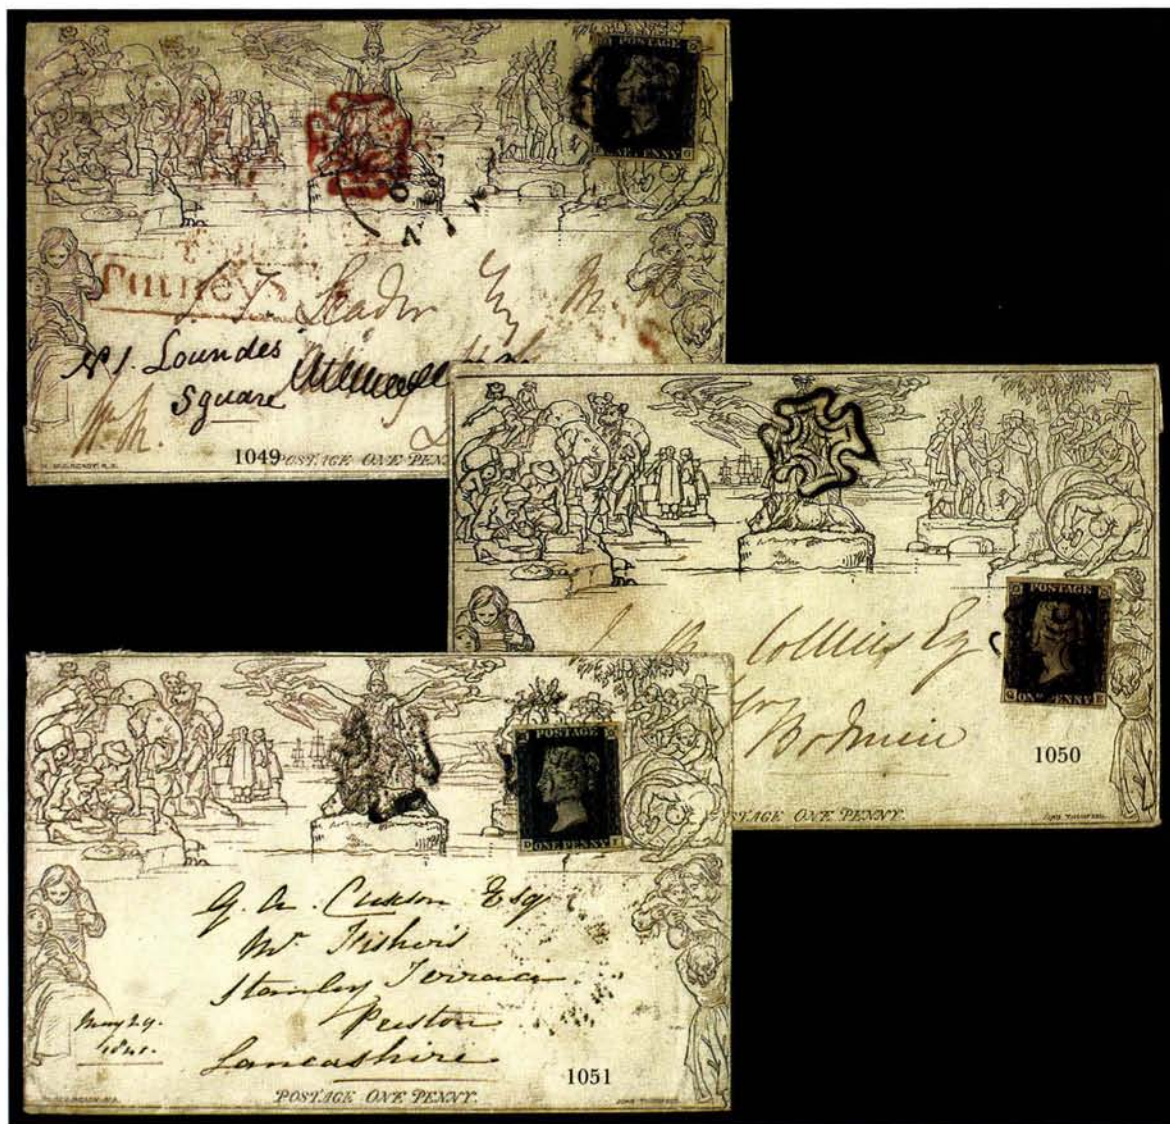 POSTAGE
ONE PENNY
Putneys
J. T. Leader Esq M.
No 1. Lowndes
Square
1049
POSTAGE ONE PENN
POSTAGE
ONE PENNY
Collins Esq
Bodmin
1050
STAGE ONE PENNY.
JOHN THOMPSON
POSTAGE
D ONE PENNY I
G. A. Cuxson Esq
Mr Fisher's
Stanley Terrace
Preston
Lancashire
May 29.
1841.
1051
POSTAGE ONE PENNY.
JOHN THOMPSON